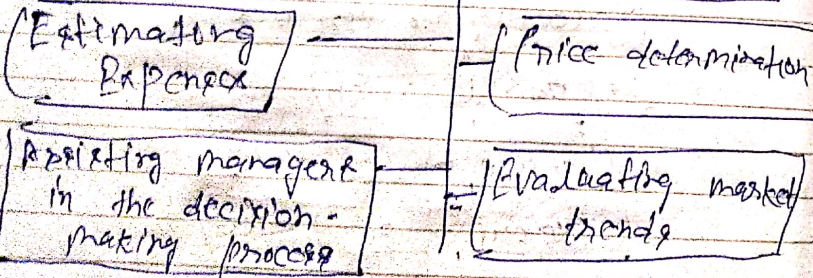 Estimating
Expenses
Price determination
Assisting managers
in the decision-
making process
Evaluating market
trends